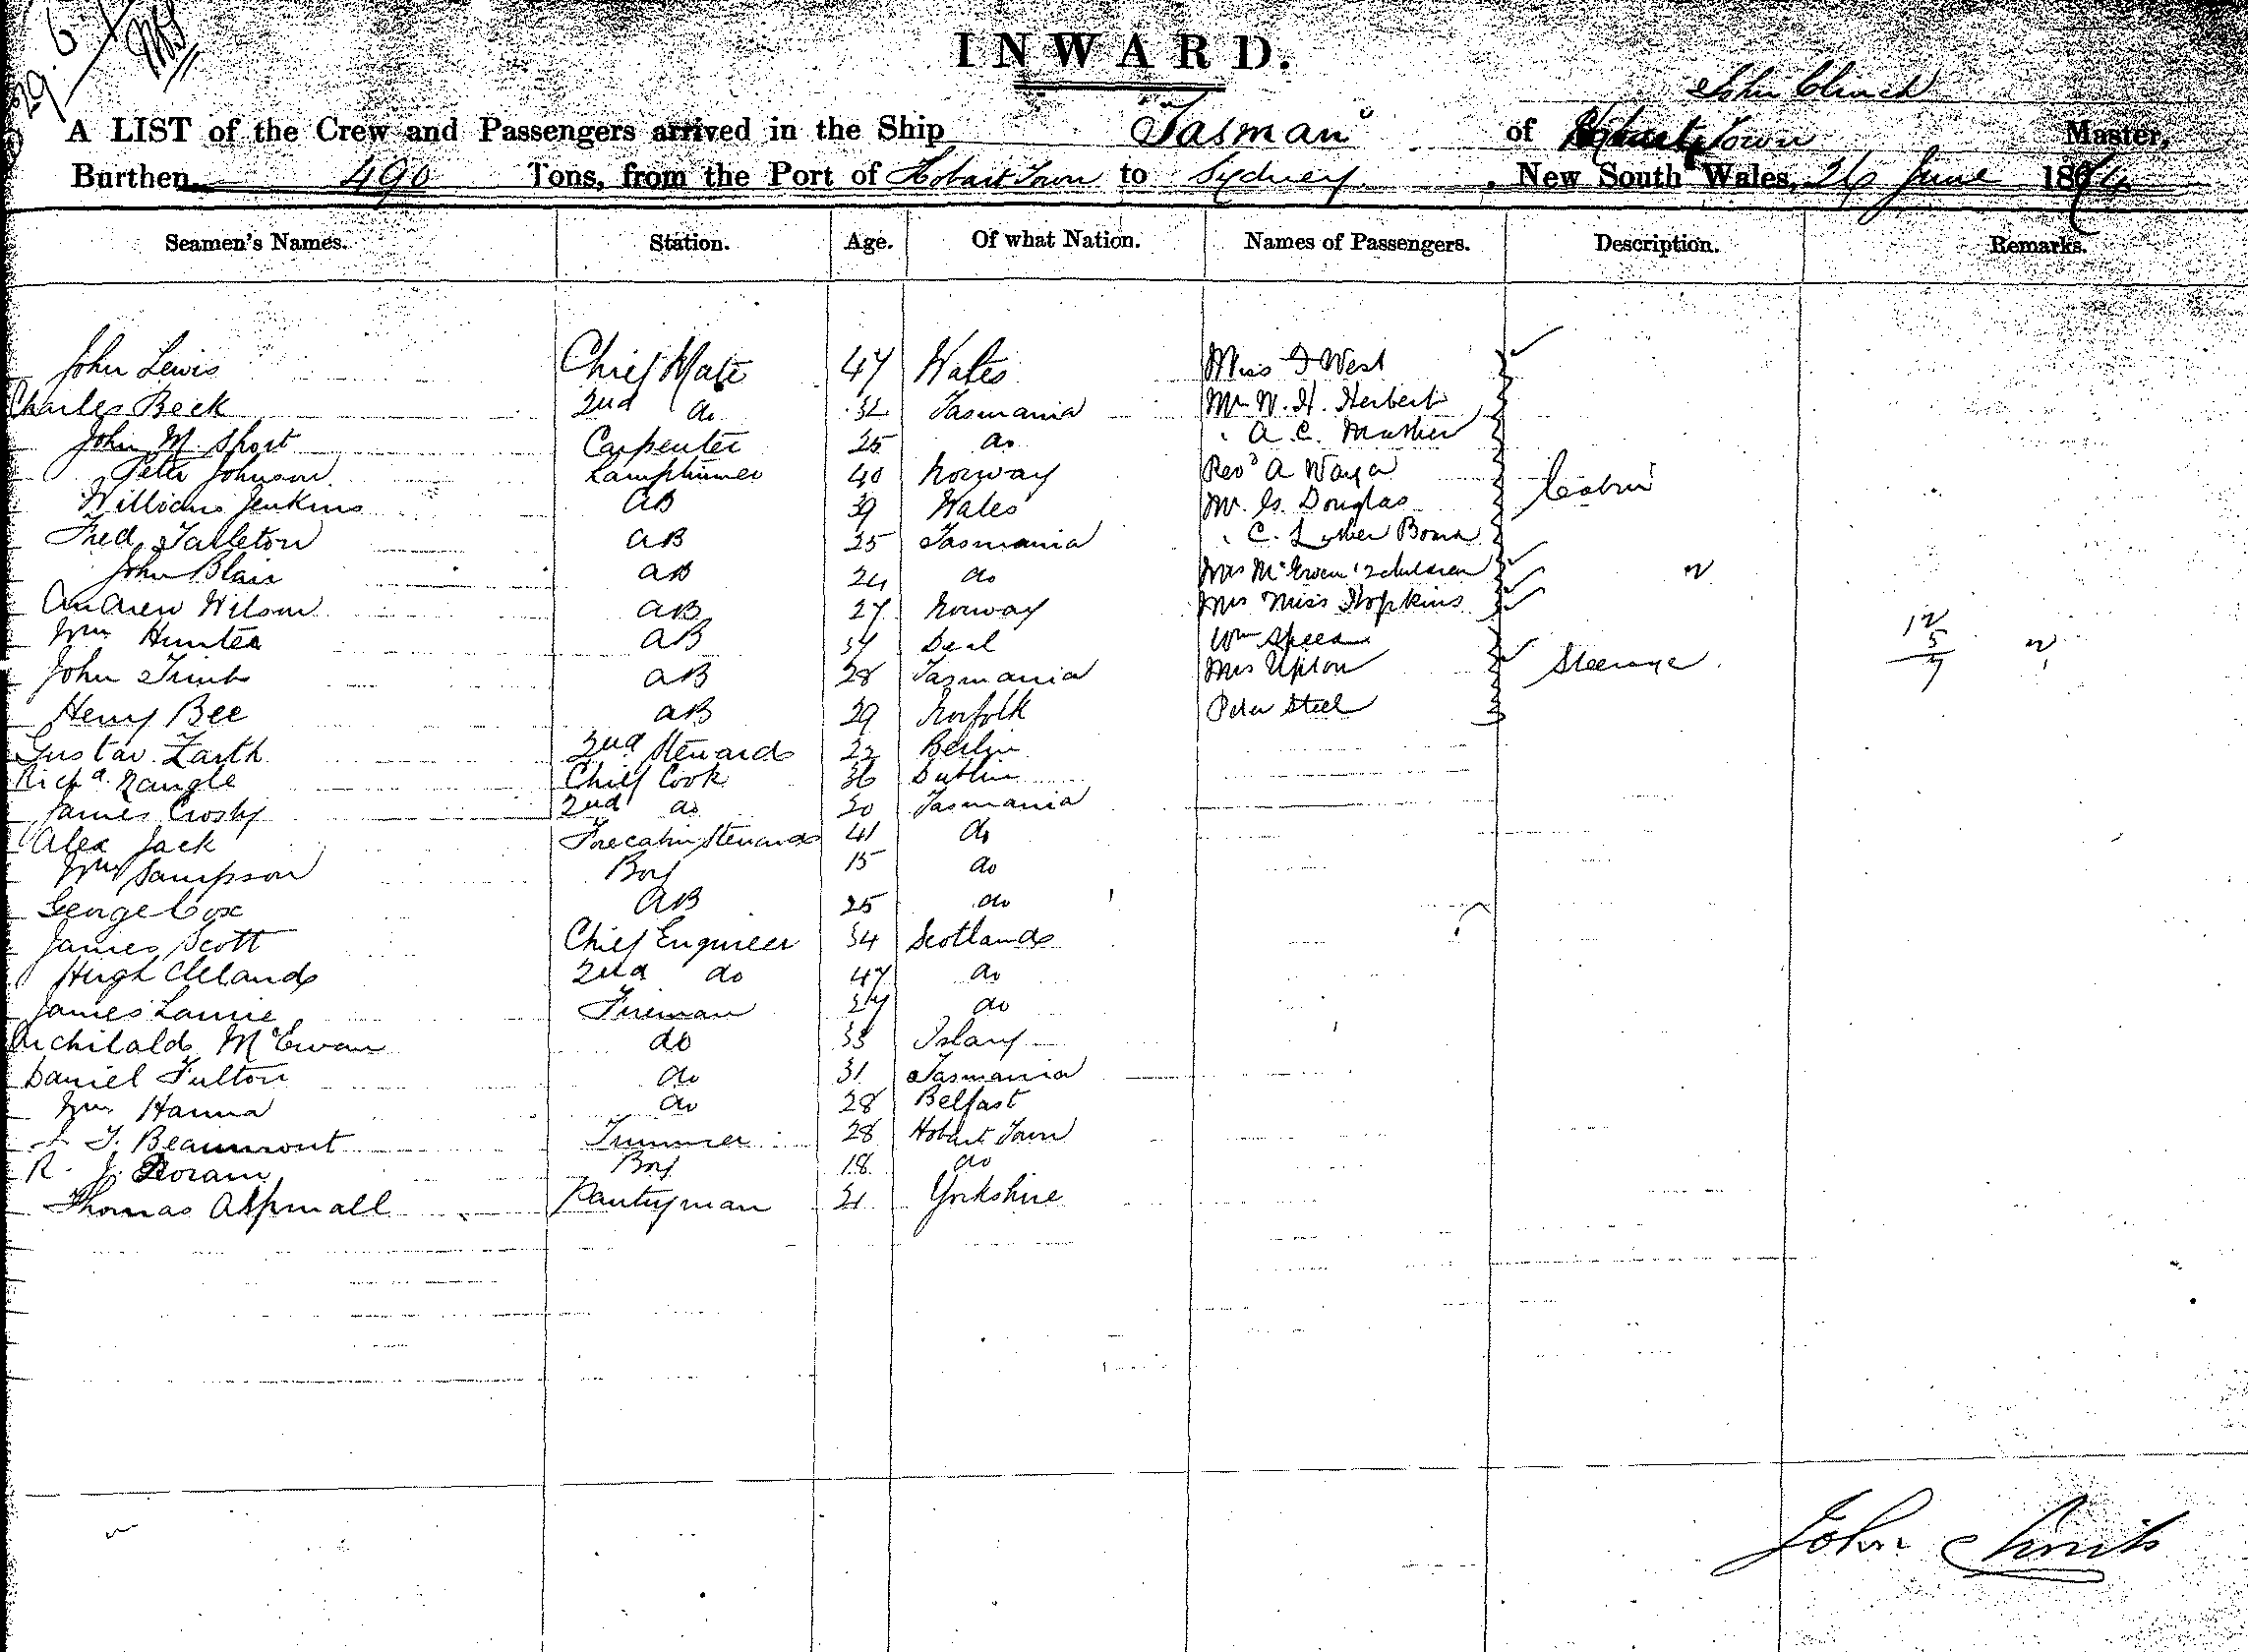 29.6
INWARD.
John Clinch
A LIST of the Crew and Passengers arrived in the Ship "Tasman" of Hobart Town Master,
Burthen 490 Tons, from the Port of Hobart Town to Sydney, New South Wales, 26 June 1874
Seamen's Names. Station. Age. Of what Nation. Names of Passengers. Description. Remarks.
John Lewis Chief Mate 47 Wales Miss F West
Charles Beck 2nd do 32 Tasmania Mr W. H. Herbert
John M. Short Carpenter 25 do " A. C. Mather
Peter Johnson Lamptrimmer 40 Norway Revd A
William Jenkins AB 39 Wales Mr. G. Douglas Cabin
Fred Tarleton AB 25 Tasmania " C. Luther
John Blair AB 24 do Mrs McEwen & 2 children
Andrew Wilson AB 27 Norway Mrs Miss Hopkins
Wm Hunter AB 37 Deal Wm Speed 12 5
John Trimb AB 28 Tasmania Mrs Upton Steerage 7
Henry Bee AB 29 Norfolk Peter Steel
Gustav Zarth 2nd Steward 22 Berlin
Richd Nangle Chief Cook 36 Dublin
James Crosby 2nd do 30 Tasmania
Alex Jack Forecabin Steward 41 do
Wm Sampson Boy 15 do
George Cox AB 25 do
James Scott Chief Engineer 34 Scotland
Hugh Cleland 2nd do 47 do
James Laurie Fireman 27 do
Archibald McEwan do 33 Islay
Daniel Fulton do 31 Tasmania
Wm Hanna do 28 Belfast
T. Beaumont Trimmer 28 Hobart Town
R. J. Boy 18 do
Thomas Aspinall Pantryman 21 Yorkshire
John Smith